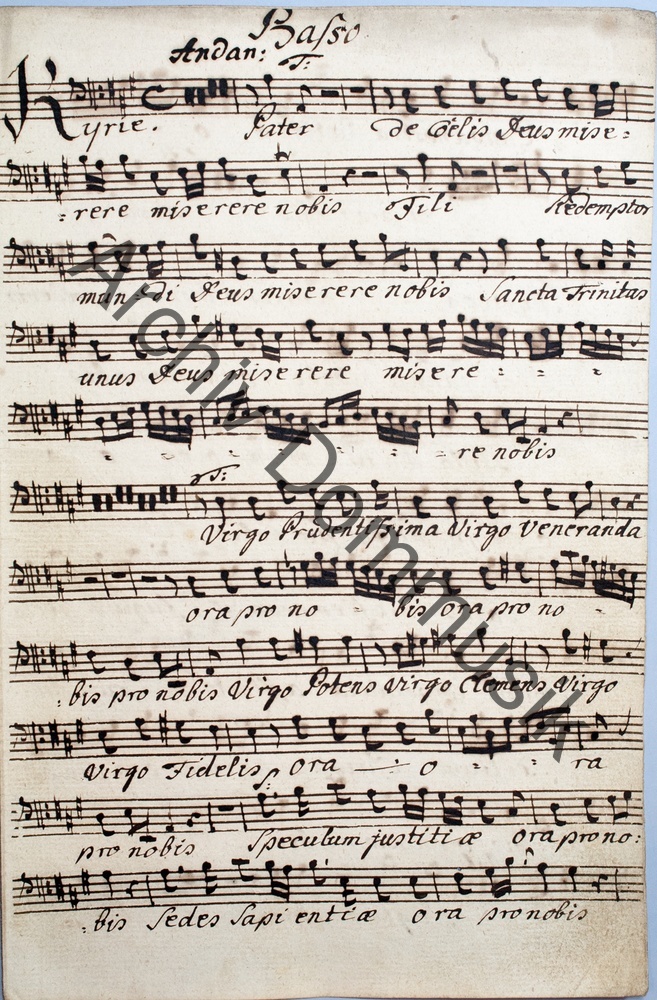 Basso
Andan: T:
Kyrie. Pater de Coelis Deus mise=
=rere miserere nobis Fili Redemptor
mun=di Deus miserere nobis Sancta Trinitas
unus Deus miserere misere = = =
= = = = = = re nobis
T:
Virgo Prudentissima Virgo Veneranda
ora pro no = bis ora pro no =
=bis pro nobis Virgo Potens Virgo Clemens Virgo
Virgo Fidelis ora o = = ra
pro nobis Speculum justitiæ ora pro no:
=bis Sedes Sapientiæ ora pro nobis
Archiv Dommusik